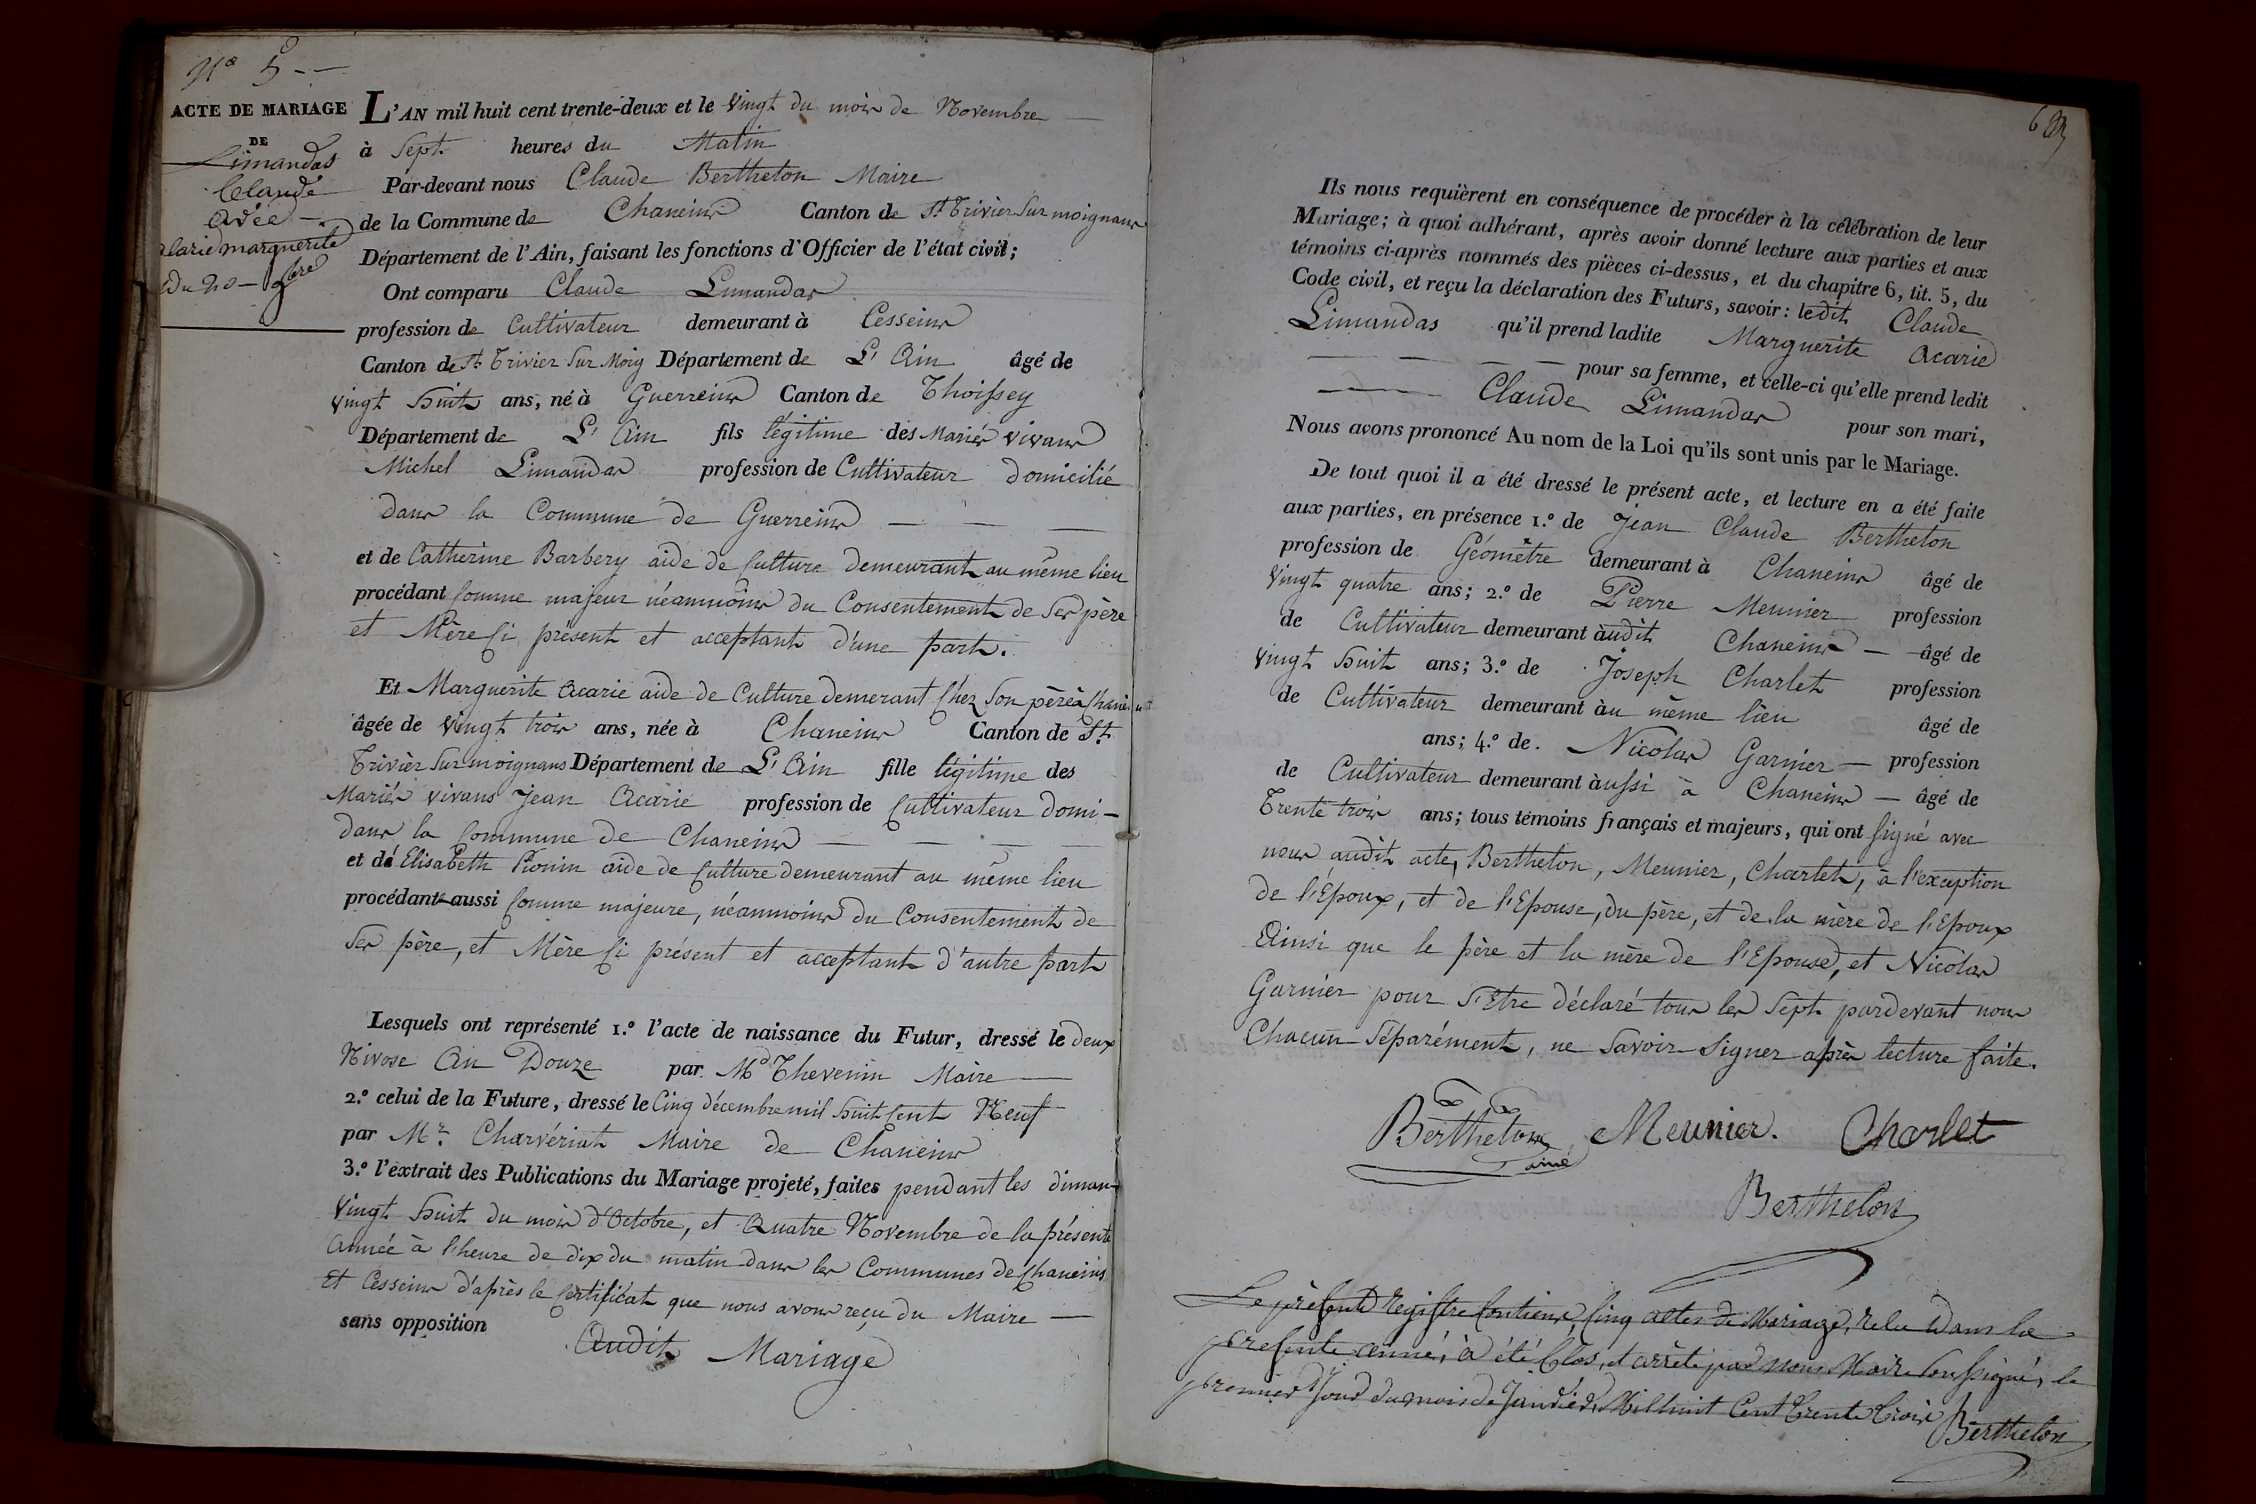 N° 5
ACTE DE MARIAGE
DE
Limandas
Claude
avec
acarie marguerite
du 20 9bre
L'AN mil huit cent trente-deux et le vingt du mois de Novembre
à Sept heures du Matin
Par-devant nous Claude Berthelon Maire
de la Commune de Chaneins Canton de St Trivier Sur moignans
Département de l'Ain, faisant les fonctions d'Officier de l'état civil;
Ont comparu Claude Limandas
profession de Cultivateur demeurant à Cesseins
Canton de St Trivier Sur Moig Département de L'Ain âgé de
vingt huit ans, né à Guerreins Canton de Thoissey
Département de L'Ain fils légitime des Mariés vivans
Michel Limandas profession de Cultivateur domicilié
dans la Commune de Guerreins
et de Catherine Barbery aide de Culture demeurant au même lieu
procédant comme majeur néanmoins du Consentement de Ses père
et Mère Ci présent et acceptant d'une part.
Et Marguerite Acarie aide de Culture demerant chez Son père à Chaneins
âgée de vingt trois ans, née à Chaneins Canton de St
Trivier Sur moignans Département de L'Ain fille légitime des
Mariés vivans Jean Acarie profession de Cultivateur domi-
dans la Commune de Chaneins
et de Elisabeth aide de Culture demeurant au même lieu
procédant aussi Comme majeure, néanmoins du Consentement de
Ses père, et Mère Ci présent et acceptant d'autre part
Lesquels ont représenté 1.° l'acte de naissance du Futur, dressé le deux
Nivose An Douze par Md Thevenin Maire
2.° celui de la Future, dressé le Cinq décembre mil huit Cent Neuf
par Mr. Charvériat Maire de Chaneins
3.° l'extrait des Publications du Mariage projeté, faites pendant les diman-
Vingt huit du mois d'Octobre, et Quatre Novembre de la présente
Année à l'heure de dix du matin dans les Communes de Chaneins
Et Cesseins d'après le Certificat que nous avons reçu du Maire
sans opposition Audit Mariage
Ils nous requièrent en conséquence de procéder à la célébration de leur
Mariage; à quoi adhérant, après avoir donné lecture aux parties et aux
témoins ci-après nommés des pièces ci-dessus, et du chapitre 6, tit. 5, du
Code civil, et reçu la déclaration des Futurs, savoir: ledit Claude
Limandas qu'il prend ladite Marguerite Acarie
pour sa femme, et celle-ci qu'elle prend ledit
Claude Limandas pour son mari,
Nous avons prononcé Au nom de la Loi qu'ils sont unis par le Mariage.
De tout quoi il a été dressé le présent acte, et lecture en a été faite
aux parties, en présence 1.° de Jean Claude Berthelon
profession de Géomètre demeurant à Chaneins âgé de
Vingt quatre ans; 2.° de Pierre Meunier profession
de Cultivateur demeurant àudit Chaneins âgé de
vingt huit ans; 3.° de Joseph Charlet profession
de Cultivateur demeurant àu même lieu âgé de
ans; 4.° de Nicolas Garnier profession
de Cultivateur demeurant àussi à Chaneins âgé de
Trente trois ans; tous témoins français et majeurs, qui ont signé avec
nous audit acte, Berthelon, Meunier, Charlet, à l'exception
de l'Époux, et de l'Epouse, du père, et de la mère de l'Epoux
Ainsi que le père et la mère de l'Epouse, et Nicolas
Garnier pour S'Etre déclaré tous les Sept pardevant nous
Chacun Séparément, ne Savoir Signer après lecture faite.
Berthelon ainé Meunier. Charlet
Berthelon
Le présent registre Contient Cinq actes de Mariage, relu Dans la
présente année, à été Clos, et arrêté par nous Maire Soussigné, le
premier Jour du mois de Janvier, Mil huit Cent trente trois Berthelon